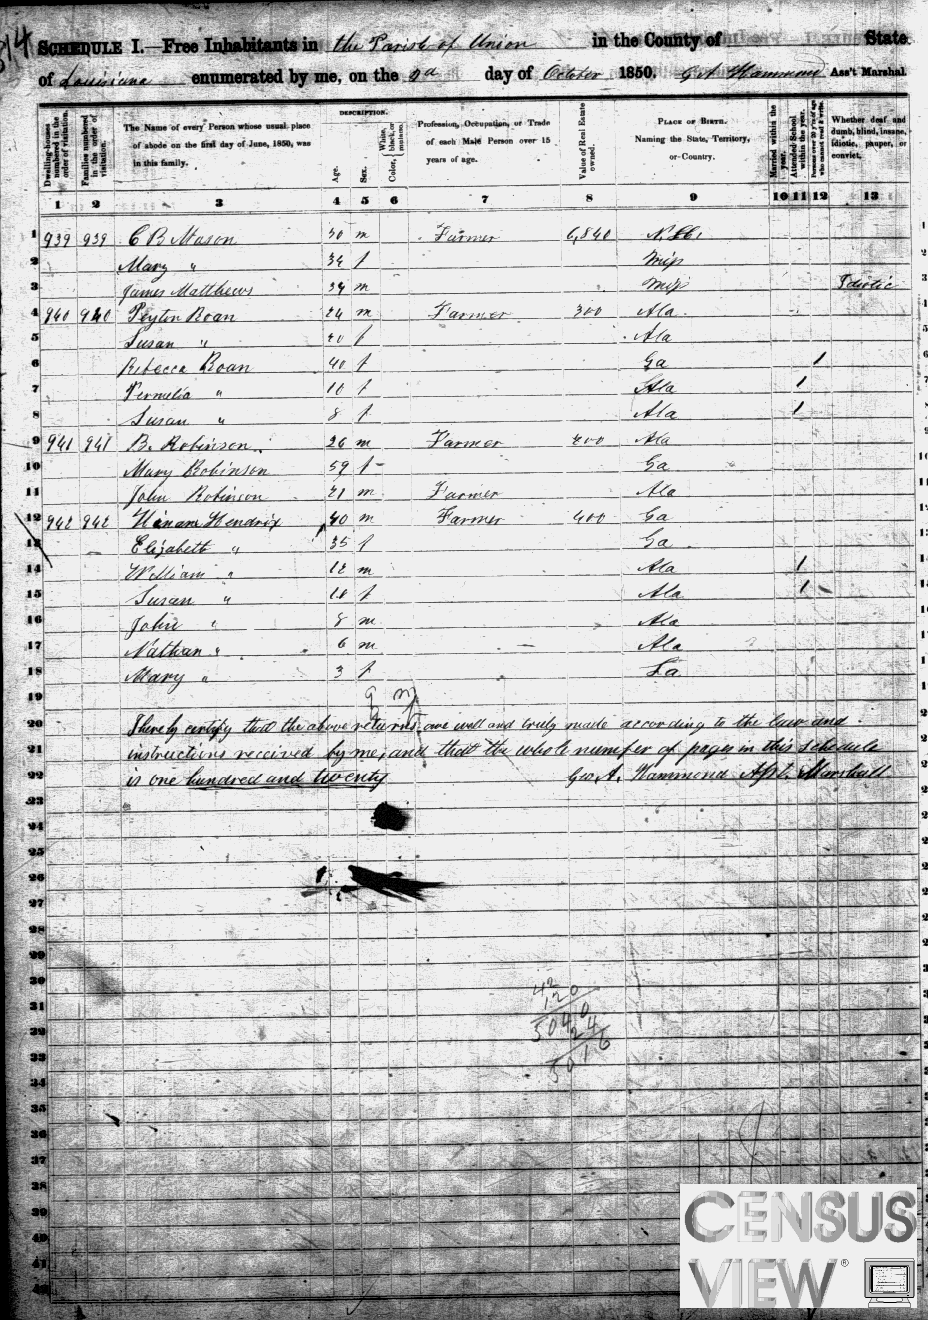 SCHEDULE I.—Free Inhabitants in the Parish of Union in the County of State
of Louisiana enumerated by me, on the day of October 1850. G A Hammond Ass't Marshal.
Dwelling-houses numbered in the order of visitation.
Families numbered in the order of visitation.
The Name of every Person whose usual place of abode on the first day of June, 1850, was in this family.
DESCRIPTION.
Age.
Sex.
Color, White, black, or mulatto.
Profession, Occupation, or Trade of each Male Person over 15 years of age.
Value of Real Estate owned.
PLACE OF BIRTH.
Naming the State, Territory, or Country.
Married within the year.
Attended School within the year.
Persons over 20 y'rs of age who cannot read & write.
Whether deaf and dumb, blind, insane, idiotic, pauper, or convict.
1 2 3 4 5 6 7 8 9 10 11 12 13
1 939 939 C B Mason 30 m Farmer 6,840
2 Mary " 34 f Mip
3 James Matthews 34 m Mip Idiotic
4 940 940 Peyton Roan 24 m Farmer 300 Ala
5 Susan " 20 f Ala
6 Rebecca Roan 40 f Ga 1
7 Permelia " 10 f Ala 1
8 Susan " 8 f Ala 1
9 941 941 B. Robinson 26 m Farmer 200 Ala
10 Mary Robinson 59 f Ga
11 John Robinson 21 m Farmer Ala
12 942 942 Hendrix 40 m Farmer 400 Ga
13 Elizabeth " 35 f Ga
14 William " 12 m Ala 1
15 Susan " 10 f Ala 1
16 John " 8 m Ala
17 Nathan " 6 m Ala
18 Mary " 3 f La
19 9 m
20 I hereby certify that the above returns are well and truly made according to the law and
21 instructions received by me, and that the whole number of pages in this schedule
22 is one hundred and twenty Geo. A. Hammond Asst. Marshall
23
24
25
26
27
28
29
30
31
32
33
34
35
36
37
38
39
40
41
42
42
120
5040
24
5016
CENSUS
VIEW®